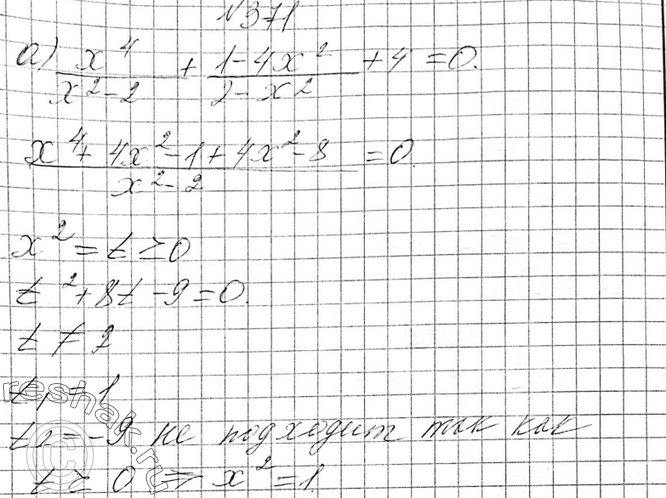 №371
а) x^4/(x^2-2) + (1-4x^2)/(2-x^2) + 4 = 0.
(x^4 + 4x^2 - 1 + 4x^2 - 8)/(x^2-2) = 0.
x^2 = t ≥ 0
t^2 + 8t - 9 = 0.
t ≠ 2
t1 = 1
t2 = -9 не подходит так как
t ≥ 0 ⇒ x^2 = 1
reshak.ru
©